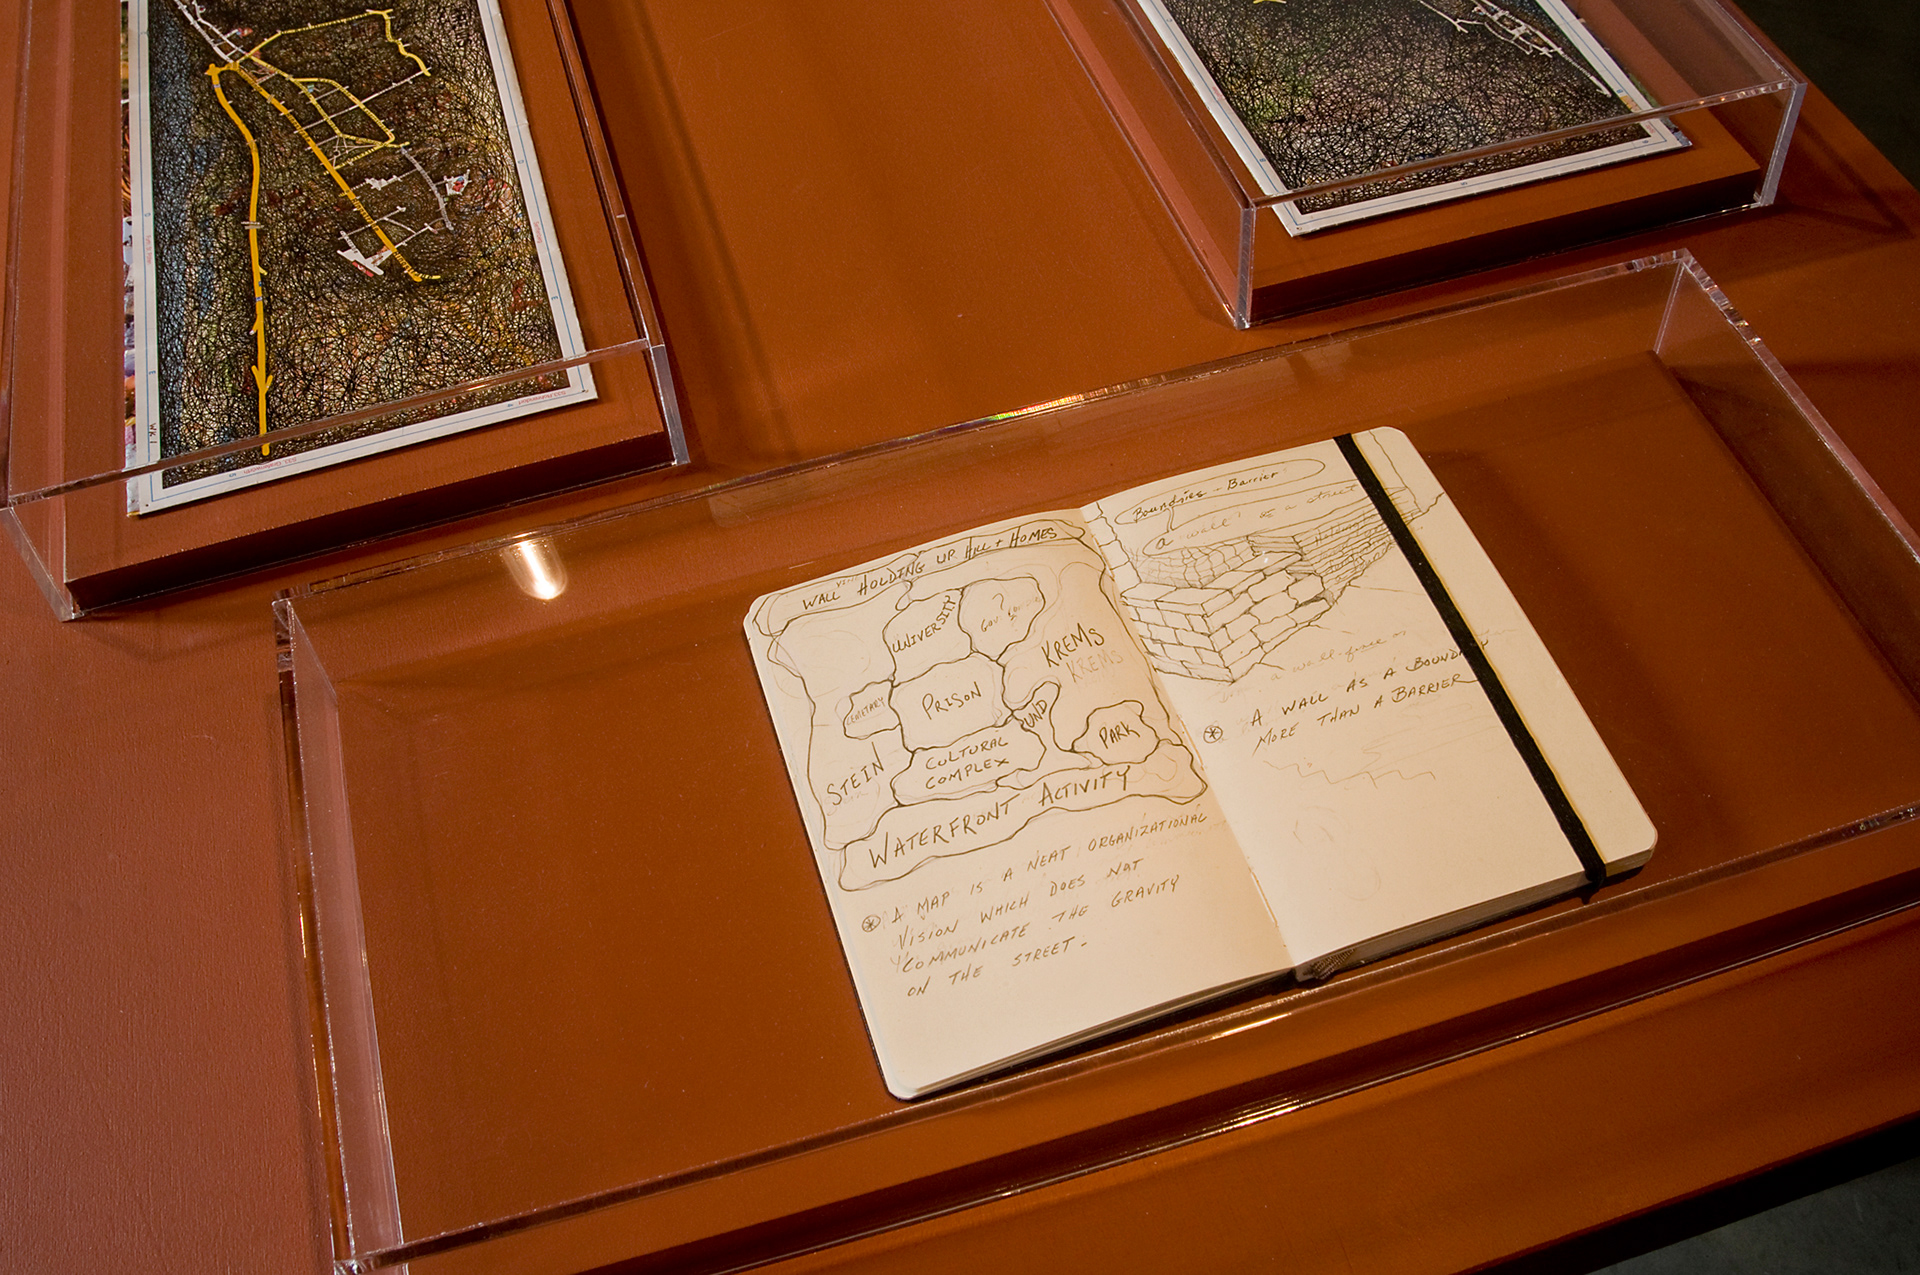 WK 1
WALL HOLDING UP HILL + HOMES
UNIVERSITY
GOV. ?
KREMS
KREMS
CEMETARY
PRISON
UND
PARK
STEIN
CULTURAL
COMPLEX
WATERFRONT ACTIVITY
A MAP IS A NEAT ORGANIZATIONAL
VISION WHICH DOES NOT
COMMUNICATE THE GRAVITY
ON THE STREET -
Boundries - Barrier
a "wall" is a street
a wall-fence or
A WALL AS A BOUND
MORE THAN A BARRIER